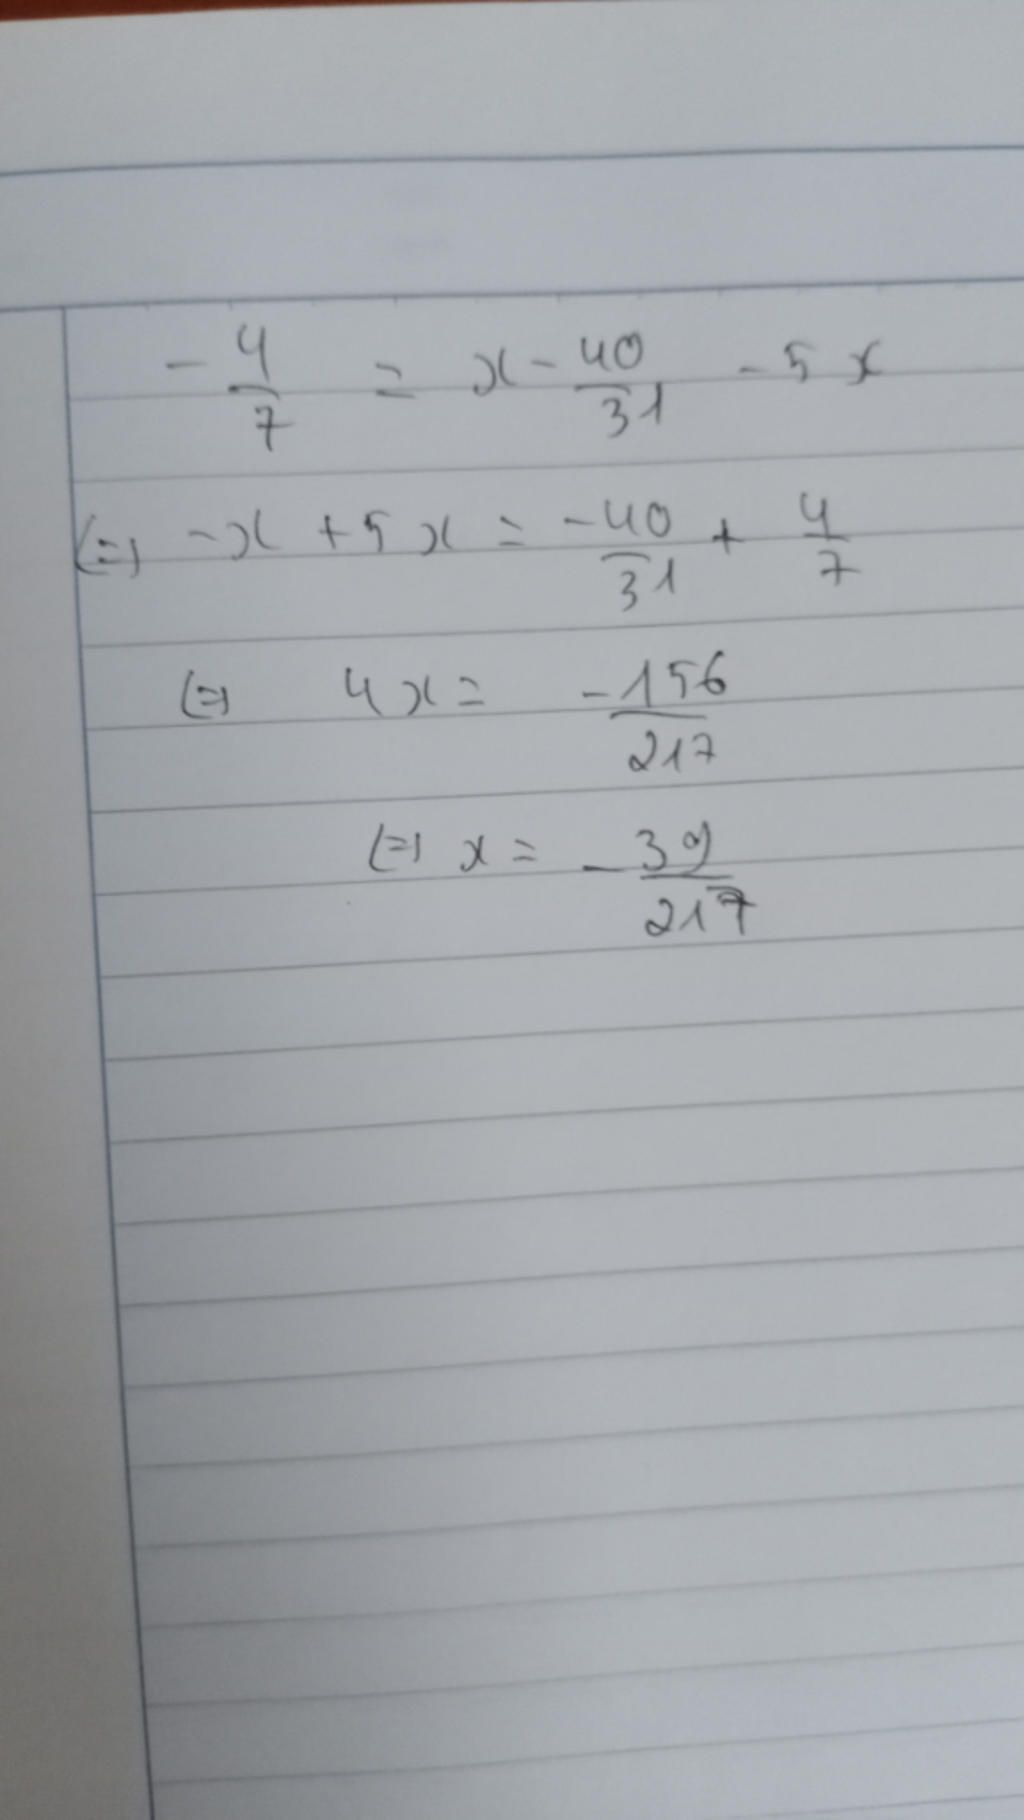 -4/7 = x - 40/31 - 5x
(=) -x + 5x = -40/31 + 4/7
(=) 4x = -156/217
(=) x = -39/217